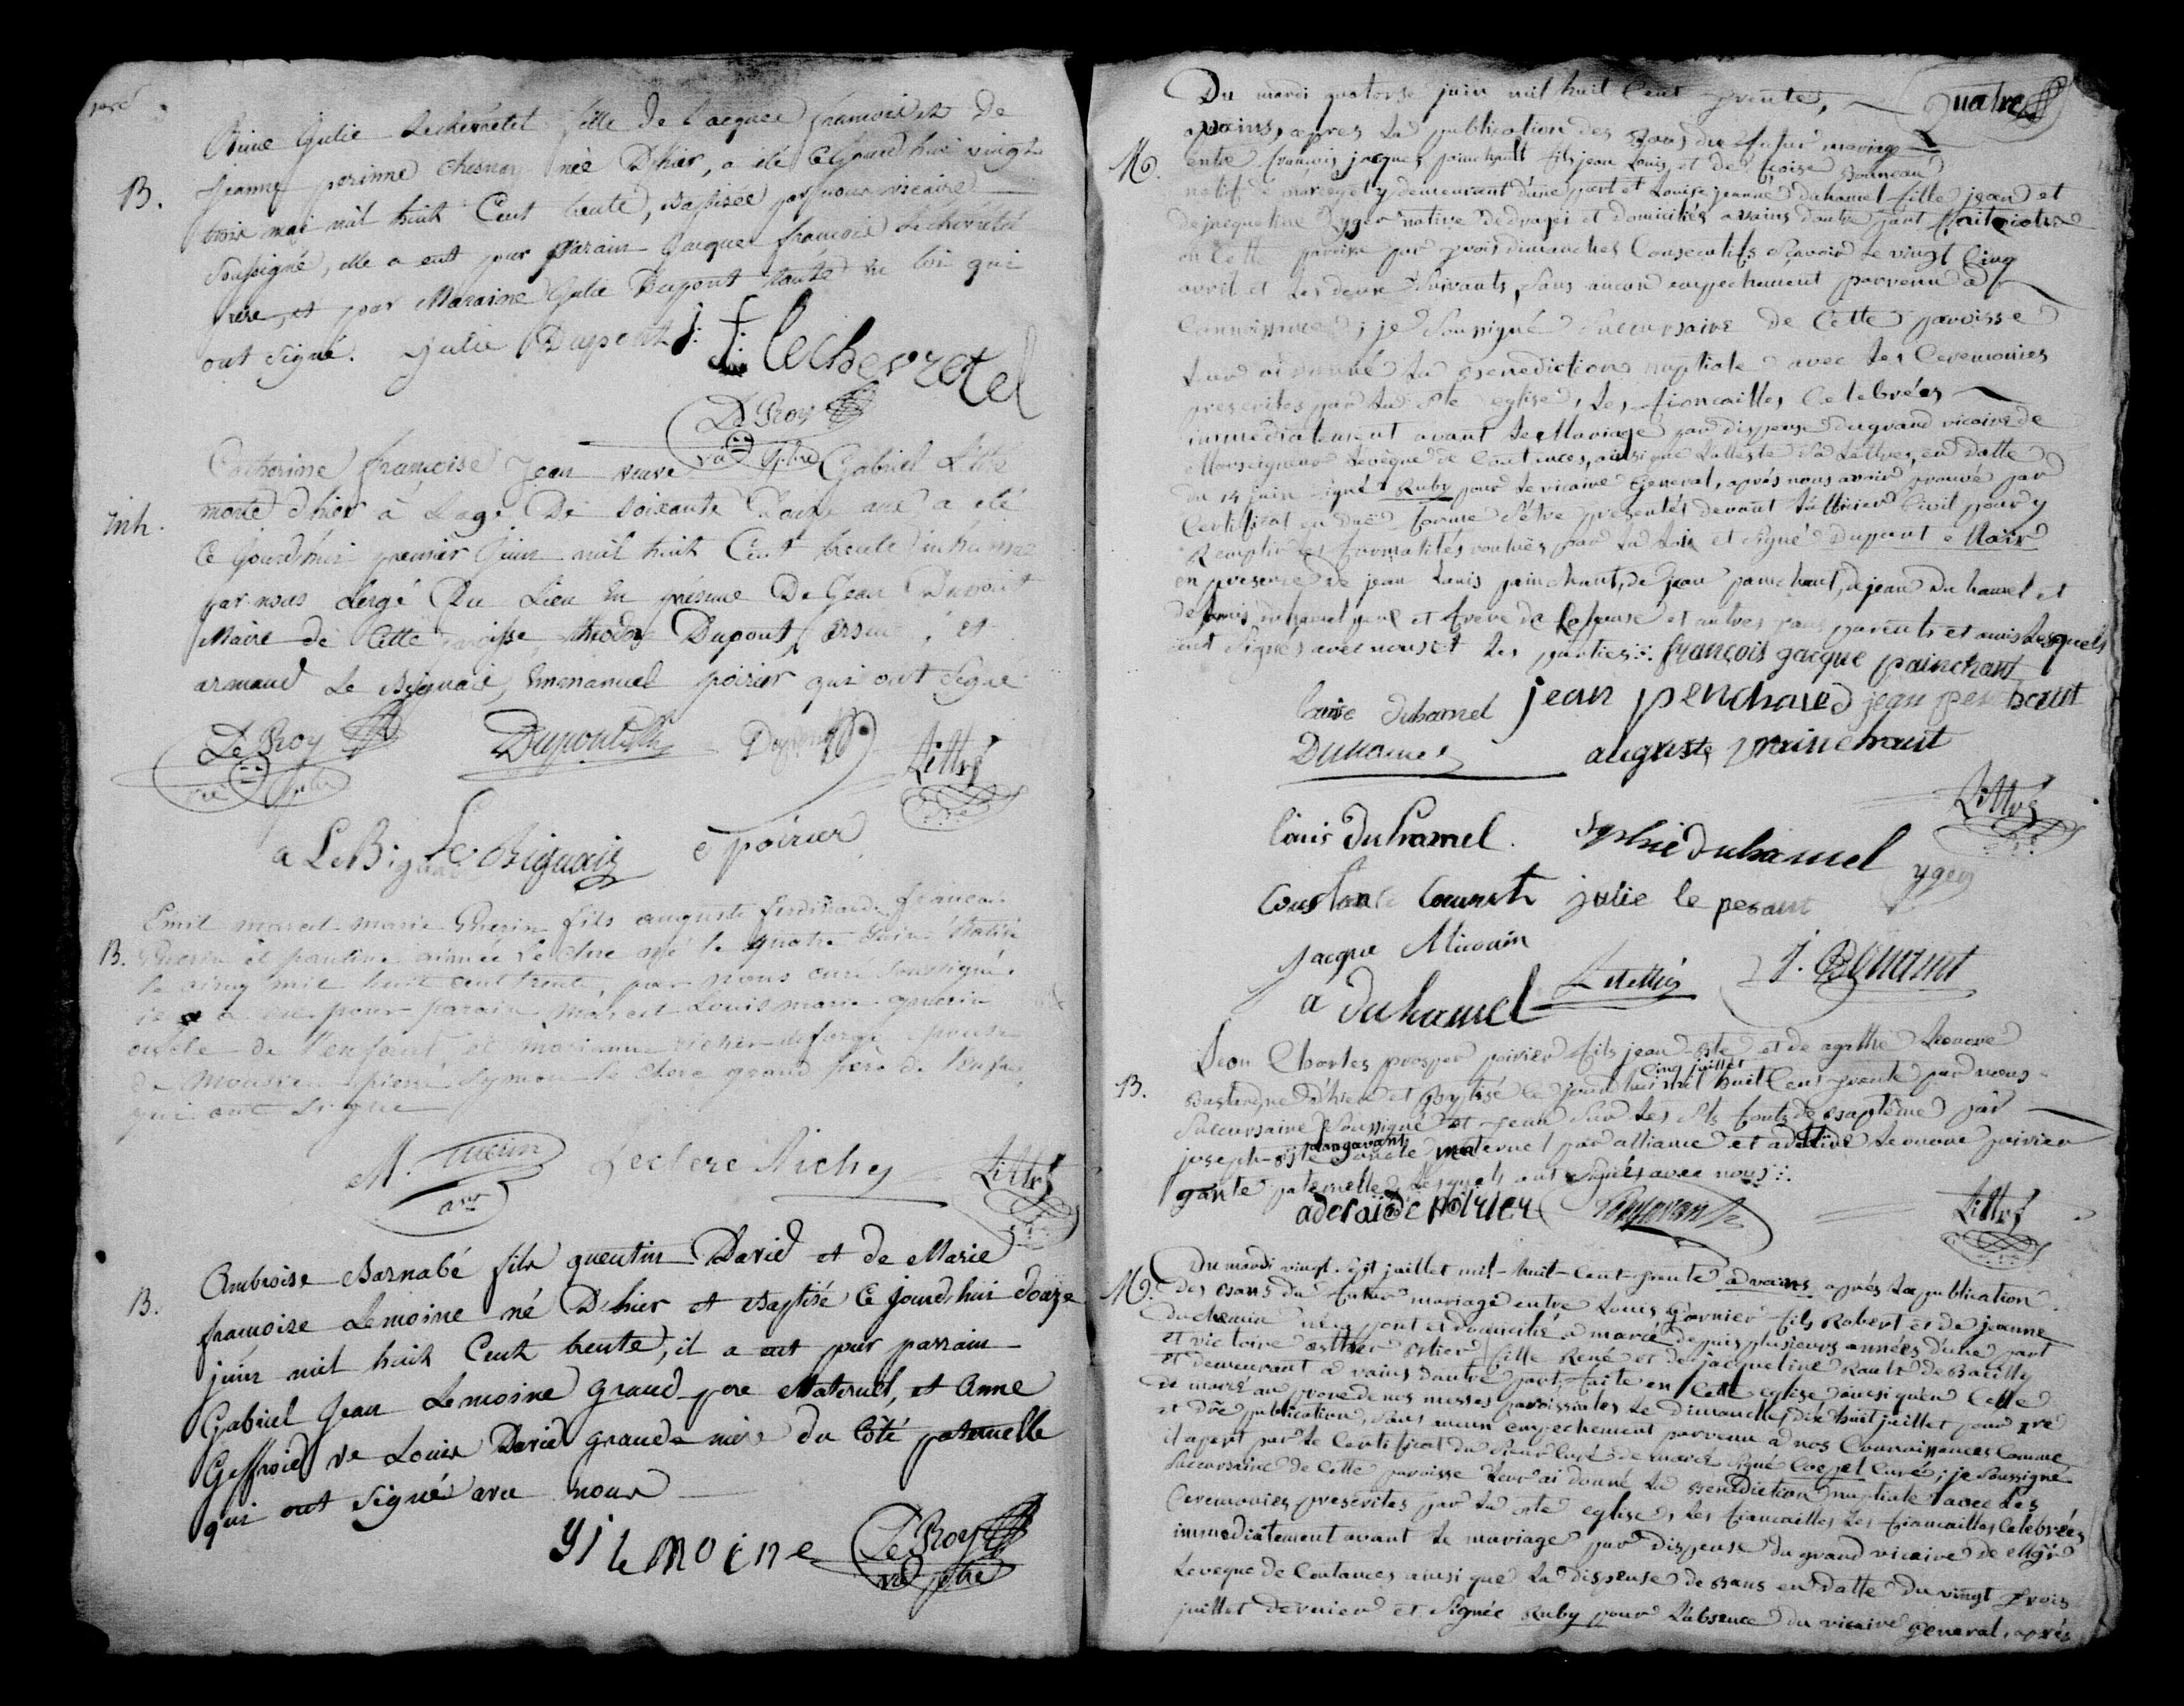 B.
Aimé Julie Lechevretel fille de Jacques françois et de
Jeanne perinne Chesnay née D'hier, a été Ce Jourd'hui vingt
trois mai mil huit Cent trente, Baptisée par nous viscaire
Soussigné, elle a eut pour Parain Jacques françois Lechevretel
rere, et par Maraine Julie Dupont tante qui
ont Signé. Julie Dupont j: f: lechevretel
Le Roy
vic ptre
inh.
Catherine françoise Jean veuve Gabriel Littré
morte d'hier à L'age De soixante Douze ans a été
Ce Jourd'hui premier Juin mil huit Cent trente inhumée
par nous Clergé Du Lieu En présence De Jean Dupont
Maire de Cette paroisse, théodore Dupont, et
armand Le Bignais, Emmanuel poirier qui ont Signé
Le Roy Dupont Dupont Littré
vic ptre
a Le Big Le Bignais e poirier
B.
Emil marcel marie Guerin fils auguste ferdinand françois
Guerin et pauline aimée Le clerc né le quatre Juin Batisé
le cinq mil huit cent trente, par nous curé soussigné.
il a eu pour parain Marcel Louis marie guerin
oncle de l'enfant, et epouse
de Monsieur pierre Symon le Clerc grand père de l'enfan
qui ont signé
M. Guerin Leclerc Richer Littré
B.
Ambroise Barnabé fils quentin David et de Marie
françoise Lemoine né D'hier et Baptisé Ce Jourd'hui douze
juin mil huit Cent trente, il a eut pour parrain
Gabriel Jean Lemoine grand-pere Maternel, et Anne
Geffroid ve Louis David grande mère du Côté paternelle
qui ont Signé avec nous
Lemoine Le Roy
vic ptre
Quatre
Du mardi quatorse juin mil huit Cent trente,
M.
a vains, apres La publication des Bans du futur mariage
entre françois jacques painchault fils jean Louis et de fçoise Bonneau
natif de marcey et y demeurant d'une part et Louise jeanne duhamel fille jean et
de jacqueline Yger native de dragei et domiciliés a vains d'autre part faite
en Cette paroisse par trois dimanches Consecutifs Sçavoir Le vingt Cinq
avril et Les deux Suivants, Sans aucun empechement parvenu a
Connoissance; je Soussigné Succursaire de Cette paroisse
Leur ai donné La Benediction nuptiale avec Les Ceremonies
prescrites par La Ste eglise, Les fiancailles Celebrées
immediatement avant Le Mariage par dispense du grand vicaire de
Monseigneur Levêque de Coutances, ainsi que L'atteste Sa Lettre, en datte
du 14 juin Signé Ruby pour Le vicaire General, après nous avoir prouvé par
Certificat en due forme S'être presentés devant L'officier Civil pour y
Remplir Les formalités voulues par La Loi et Signé Dupont Mair
en presence de jean Louis painchaut, de jean painchaut, de jean Du hamel et
de Louis duhamel pere et frere de Lepouse et autres parents et amis Lesquels
ont Signés avec nous et Les parties françois jacque painchaut
louise duhamel jean penchaud jean penchaut
Duhamel auguste painchaut
Littré
louis Duhamel. Sophie duhamel yger
Constance julie le pesant
Jacque Micouin
a duhamel Letellier
B.
Leon Charles prosper poirier fils jean Bte et de agathe Lenoue
cinq juillet
Bastard, ne d'hier et Baptisé Ce jourd'hui mil huit Cent trente par nous
Succursaire Soussigné et tenu Sur Les Sts fonts de Baptême par
Longavant
joseph Bte oncle maternel par alliance et adelaïde Lenoue poirier
tante paternelle, Lesquels ont Signés avec nous.
adelaïde poirier Longavant Littré
M.
Du mardi vingt Sept juillet mil-huit-cent-trente a vains après La publication
des Bans du futur mariage entre Louis Garnier fils Robert et de jeanne
duchemin né a pont et domicilié a marcé depuis plusieurs années d'une part
et victoire esther fille René et de jacqueline Rault de Bacilly
et demeurant a vains d'autre part, faite en Cette eglise ainsi qu'en Celle
de marcé au prone de nos messes paroissiales Le Dimanche dix huit juillet pour 1re
et dre publication, Sans aucun empechement parvenu a nos Connoissances comme
il apert par Le Certificat du Sieur Curé de marcé Signé Curé; je Soussigné
Succursaire de Cette paroisse Leur ai donné La Benediction nuptiale avec Les
Ceremonies prescrites par La Ste eglise, Les fiancailles Les fiancailles Celebrées
immediatement avant Le mariage par dispense du grand vicaire de Mgr
Leveque de Coutances ainsi que La dispense de Bans en datte du vingt trois
juillet dernier et Signée Ruby pour L'absence du vicaire general, après